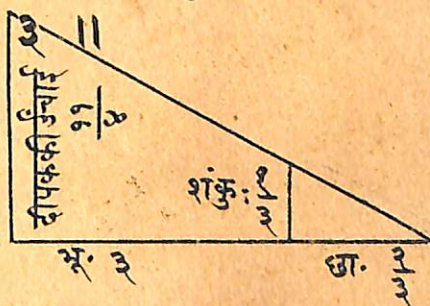 ३ ॥
दीपककी उंचाई
११
४
शंकुः
भू. ३
छा. २
३